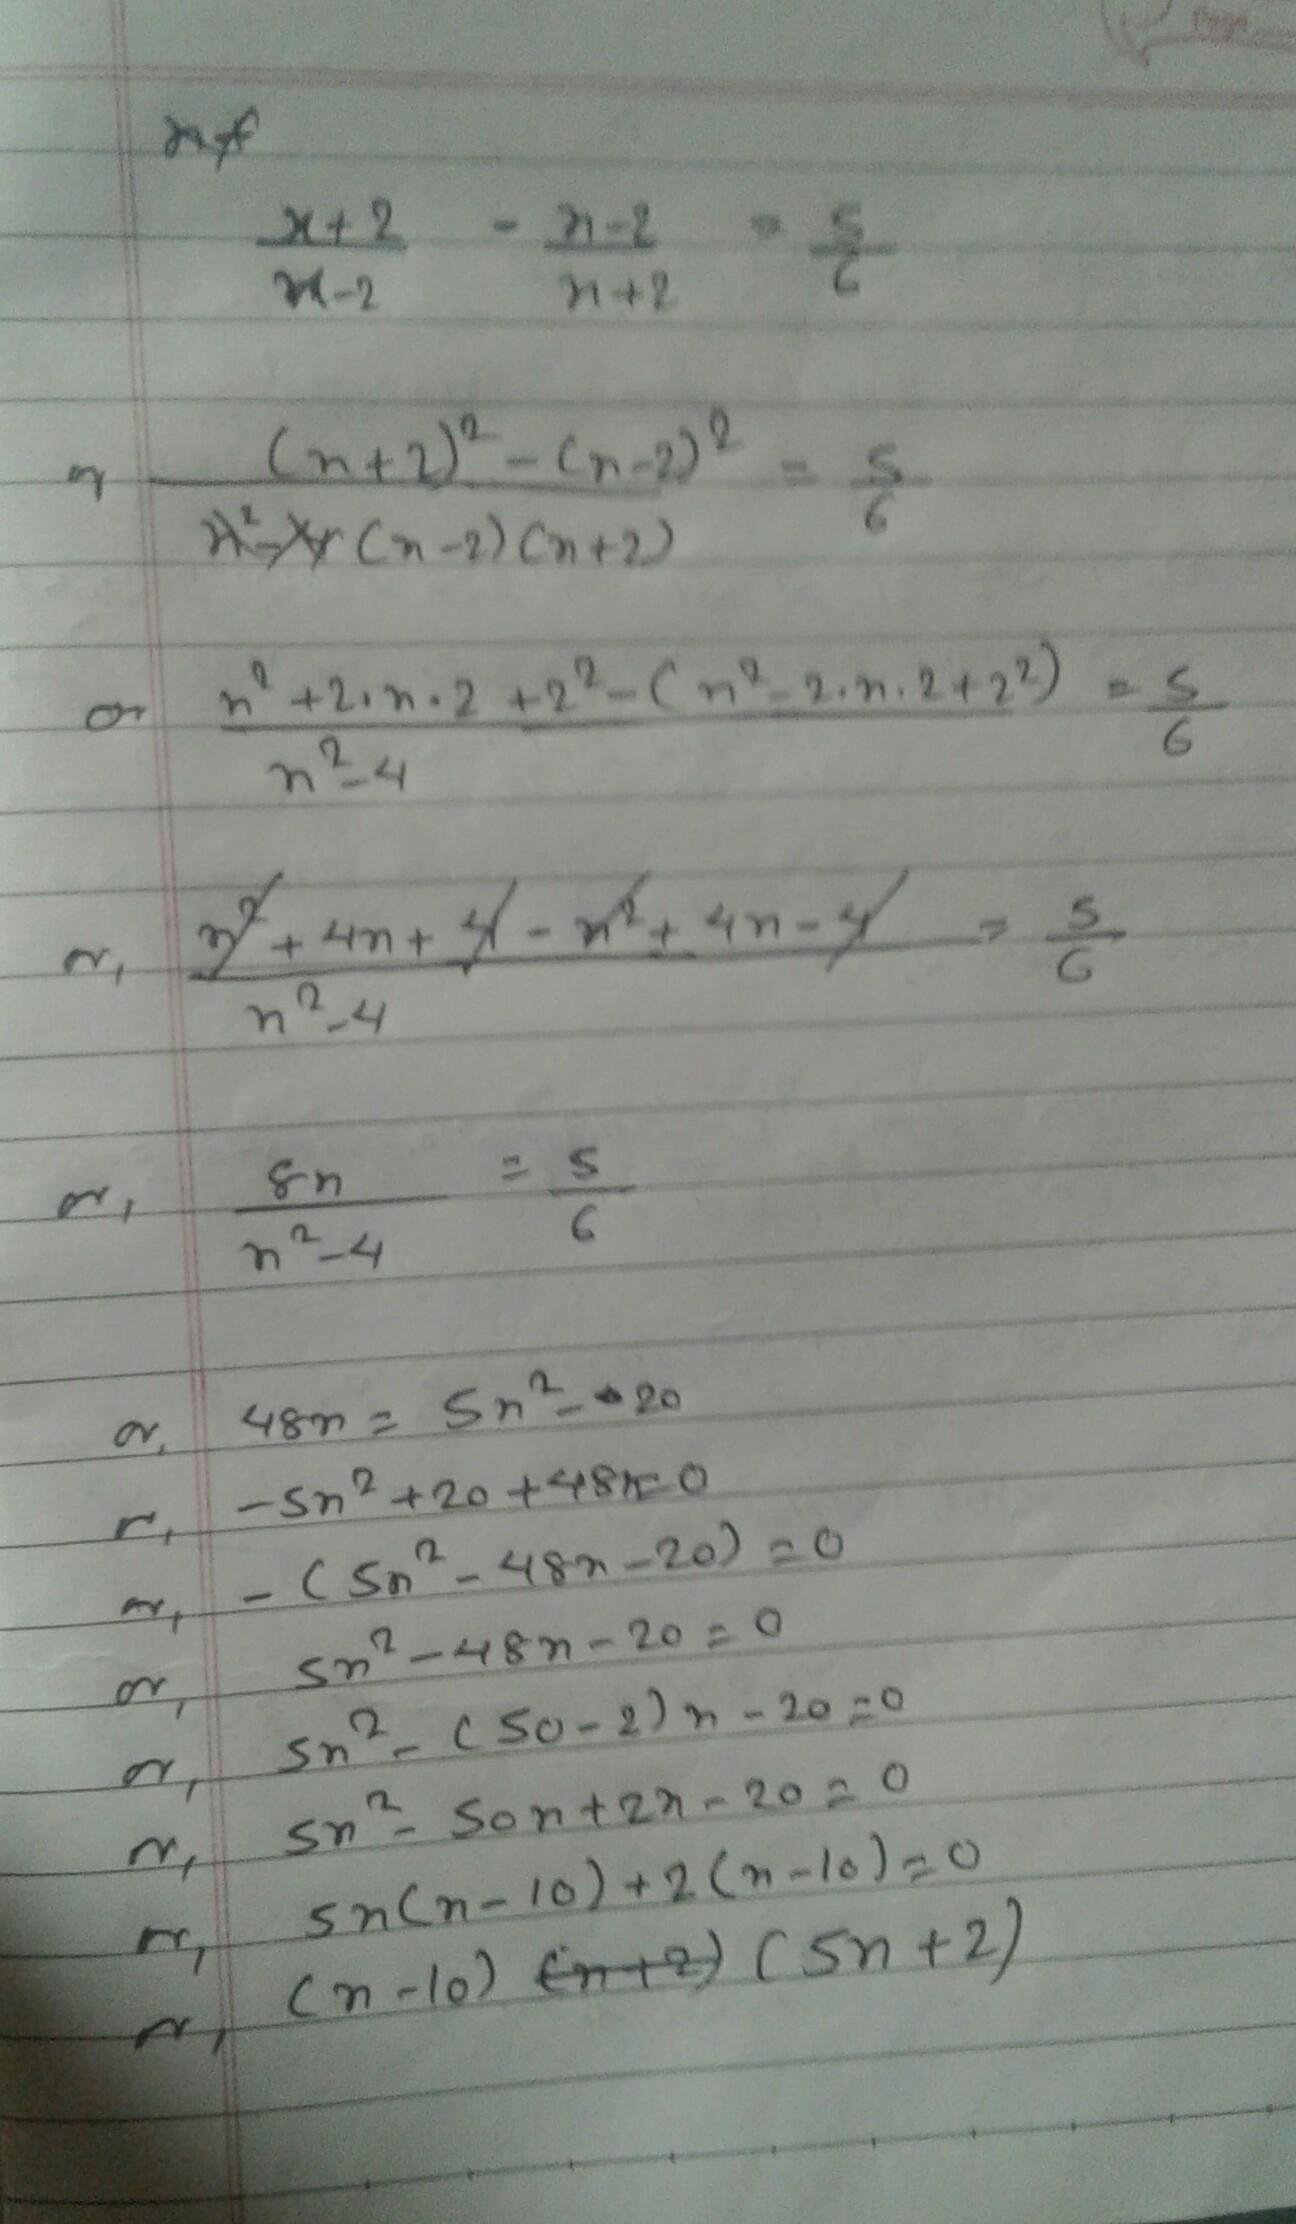 x+2/x-2 - x-2/x+2 = 5/6
or (x+2)² - (x-2)² / (x-2)(x+2) = 5/6
or x²+2.x.2+2²-(x²-2.x.2+2²) / x²-4 = 5/6
or, x²+4x+4-x²+4x-4 / x²-4 = 5/6
or, 8x / x²-4 = 5/6
or, 48x = 5x²-20
or, -5x²+20+48x=0
or, -(5x²-48x-20)=0
or, 5x²-48x-20=0
or, 5x²-(50-2)x-20=0
or, 5x²-50x+2x-20=0
or, 5x(x-10)+2(x-10)=0
or, (x-10) (x+2) (5x+2)